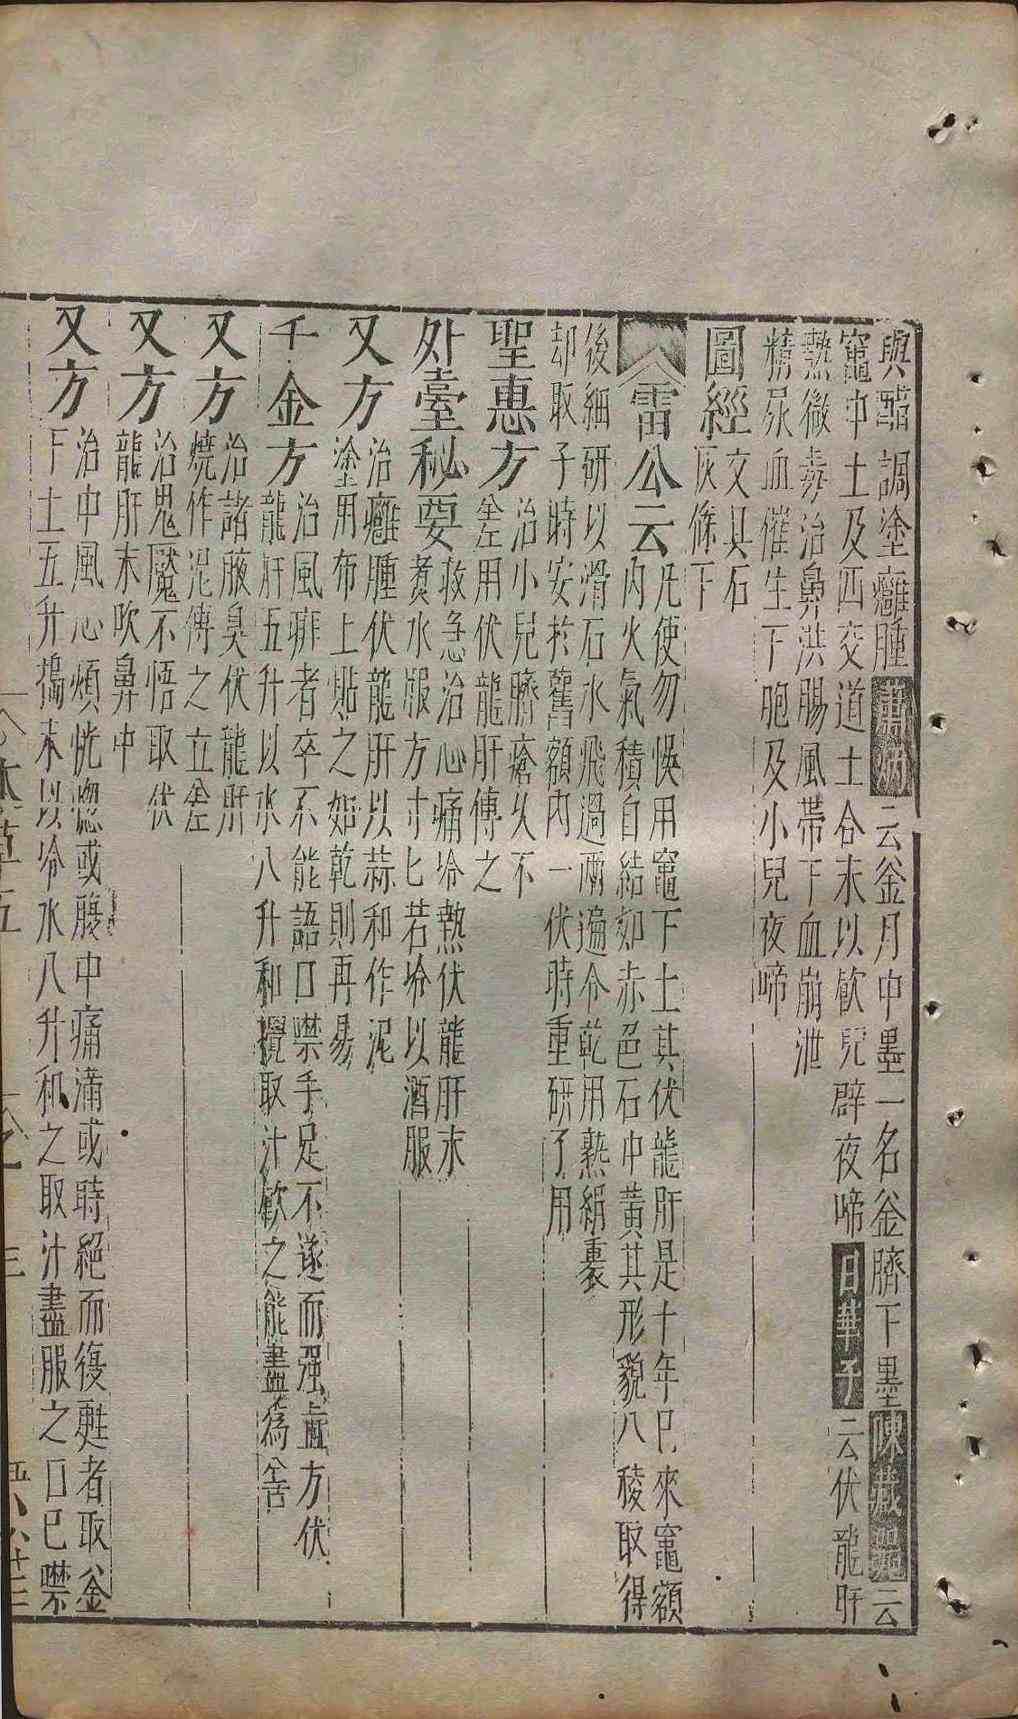 與醋調塗癰腫蕭炳云釜月中墨一名釜臍下墨陳藏器云
竈中土及四交道土合末以飲兒辟夜啼日華子云伏龍肝
熱微毒治鼻洪腸風帶下血崩泄
精尿血催生下胞及小兒夜啼
圖經文具石
灰條下
雷公云凡使勿悞用竈下土其伏龍肝是十年已來竈額
內火氣積自結如赤色石中黃其形貌八稜取得
後細研以滑石水飛過兩遍令乾用熟絹裹
却取子時安於舊額內一伏時重研了用
聖惠方治小兒臍瘡久不
差用伏龍肝傅之
外臺秘要救急治心痛冷熱伏龍肝末
煑水服方寸匕若冷以酒服
又方治癰腫伏龍肝以蒜和作泥
塗用布上貼之如乾則再易
千金方治風痱者卒不能語口噤手足不遂而强直方伏
龍肝五升以水八升和攪取汁飲之能盡爲善
又方治諸腋臭伏龍肝
燒作泥傅之立差
又方治鬼魘不悟取伏
龍肝末吹鼻中
又方治中風心煩恍惚或腹中痛滿或時絕而復甦者取釜
下土五升搗末以冷水八升和之取汁盡服之口已噤
本草五
三